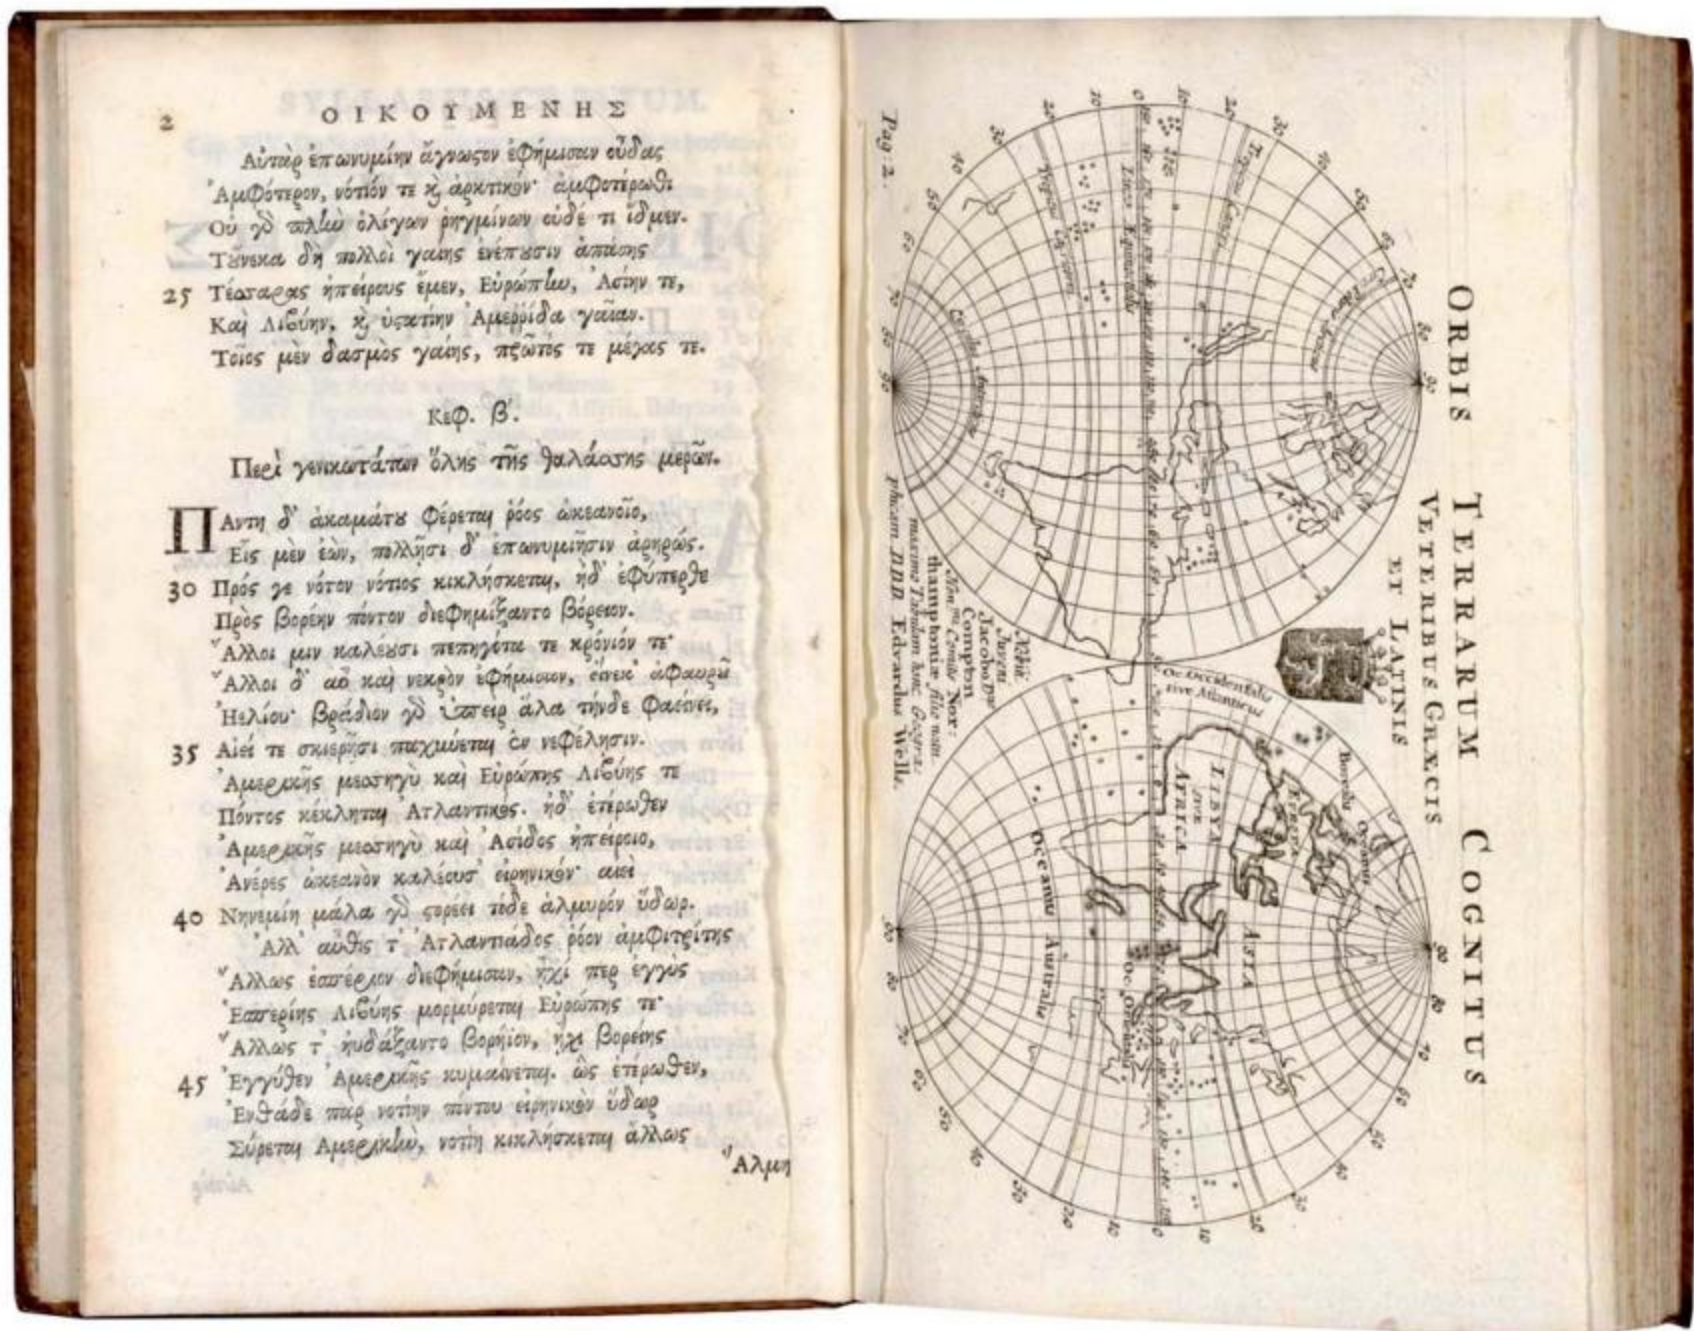 2
ΟΙΚΟΥΜΕΝΗΣ
Αὐτὰρ ἐπωνυμίην ἄγνωστον ἐφήμισαν οὖδας
Ἀμφότερον, νότιόν τε κỳ ἀρκτικόν· ἀμφοτέρωθι
Οὐ γὸ πλὴν ὀλίγων ῥηγμίνων οὐδέ τι ἴδμεν.
Τȣ́νεκα δὴ πολλοὶ γαίης ἐνέπȣσιν ἁπάσης
25 Τέσσαρας ἠπείρους ἔμεν, Εὐρώπlω, Ἀσίην τε,
Καὶ Λιβύην, κỳ ὑστατίην Ἀμερρίδα γαῖαν.
Τοῖος μὲν δασμὸς γαίης, πρῶτός τε μέγας τε.
Κεφ. β΄.
Περὶ γενικωτάτων ὅλης τῆς θαλάσσης μερῶν.
ΠΑντη δ' ἀκαμάτȣ φέρεται ῥόος ὠκεανοῖο,
Εἷς μὲν ἐὼν, πολλῇσι δ' ἐπωνυμίῃσιν ἀρηρώς.
30 Πρός γε νότον νότιος κικλήσκεται, ἠδ' ἐφύπερθε
Πρὸς βορέην πόντον διεφημίξαντο βόρειον.
Ἄλλοι μιν καλέȣσι πεπηγότα τε κρόνιόν τε·
Ἄλλοι δ' αὖ καὶ νεκρὸν ἐφήμισαν, εἵνεκ' ἀφαυρῦ
Ἠελίου· βράδιον γὸ ὑπεὶρ ἅλα τήνδε φαείνει,
35 Αἰεί τε σκιερῇσι παχνύεται ἐν νεφέλῃσιν.
Ἀμερικῆς μεσσηγὺ καὶ Εὐρώπης Λιβύης τε
Πόντος κέκληται Ἀτλαντικός. ἠδ' ἑτέρωθεν
Ἀμερικῆς μεσσηγὺ καὶ Ἀσίδος ἠπείροιο,
Ἀνέρες ὠκεανὸν καλέουσ' εἰρηνικόν· αἰεὶ
40 Νηνεμίη μάλα γὸ στορέει τόδε ἁλμυρόν ὕδωρ.
Ἀλλ' αὖθις τ' Ἀτλαντιάδος ῥόον ἀμφιτρίτης
Ἄλλως ἑσπέριον διεφήμισαν, ἧχί περ ἐγγὺς
Ἑσπερίης Λιβύης μορμύρεται Εὐρώπης τε·
Ἄλλως τ' ηὐδάξαντο βορήϊον, ἧχι βορείης
45 Ἐγγύθεν Ἀμερικῆς κυμαίνεται. ὣς ἑτέρωθεν,
Ἐνθάδε παρ νοτίην πόντου εἰρηνικὸν ὕδωρ
Σύρεται Ἀμερικlω, νοτίη κικλήσκεται ἄλλως
Ἅλμη
Pag: 2.
ORBIS TERRARUM COGNITUS
VETERIBUS GRÆCIS
ET LATINIS
Tropicus Cancri
Linea Equinoctialis
Circulus Antarcticus
Oc Occidentalis
sive Atlanticus
LIBYA
sive
AFRICA
EUROPA
ASIA
Oceanus Australis
Oc. Orientalis
Nobili
Juveni
Jacobo Dno
Compton
Hon.mi Comitis Nor:
thamptoniæ filio natu
maximo Tabulam hanc Geogra:
phicam D.D.D. Edvardus Wells.